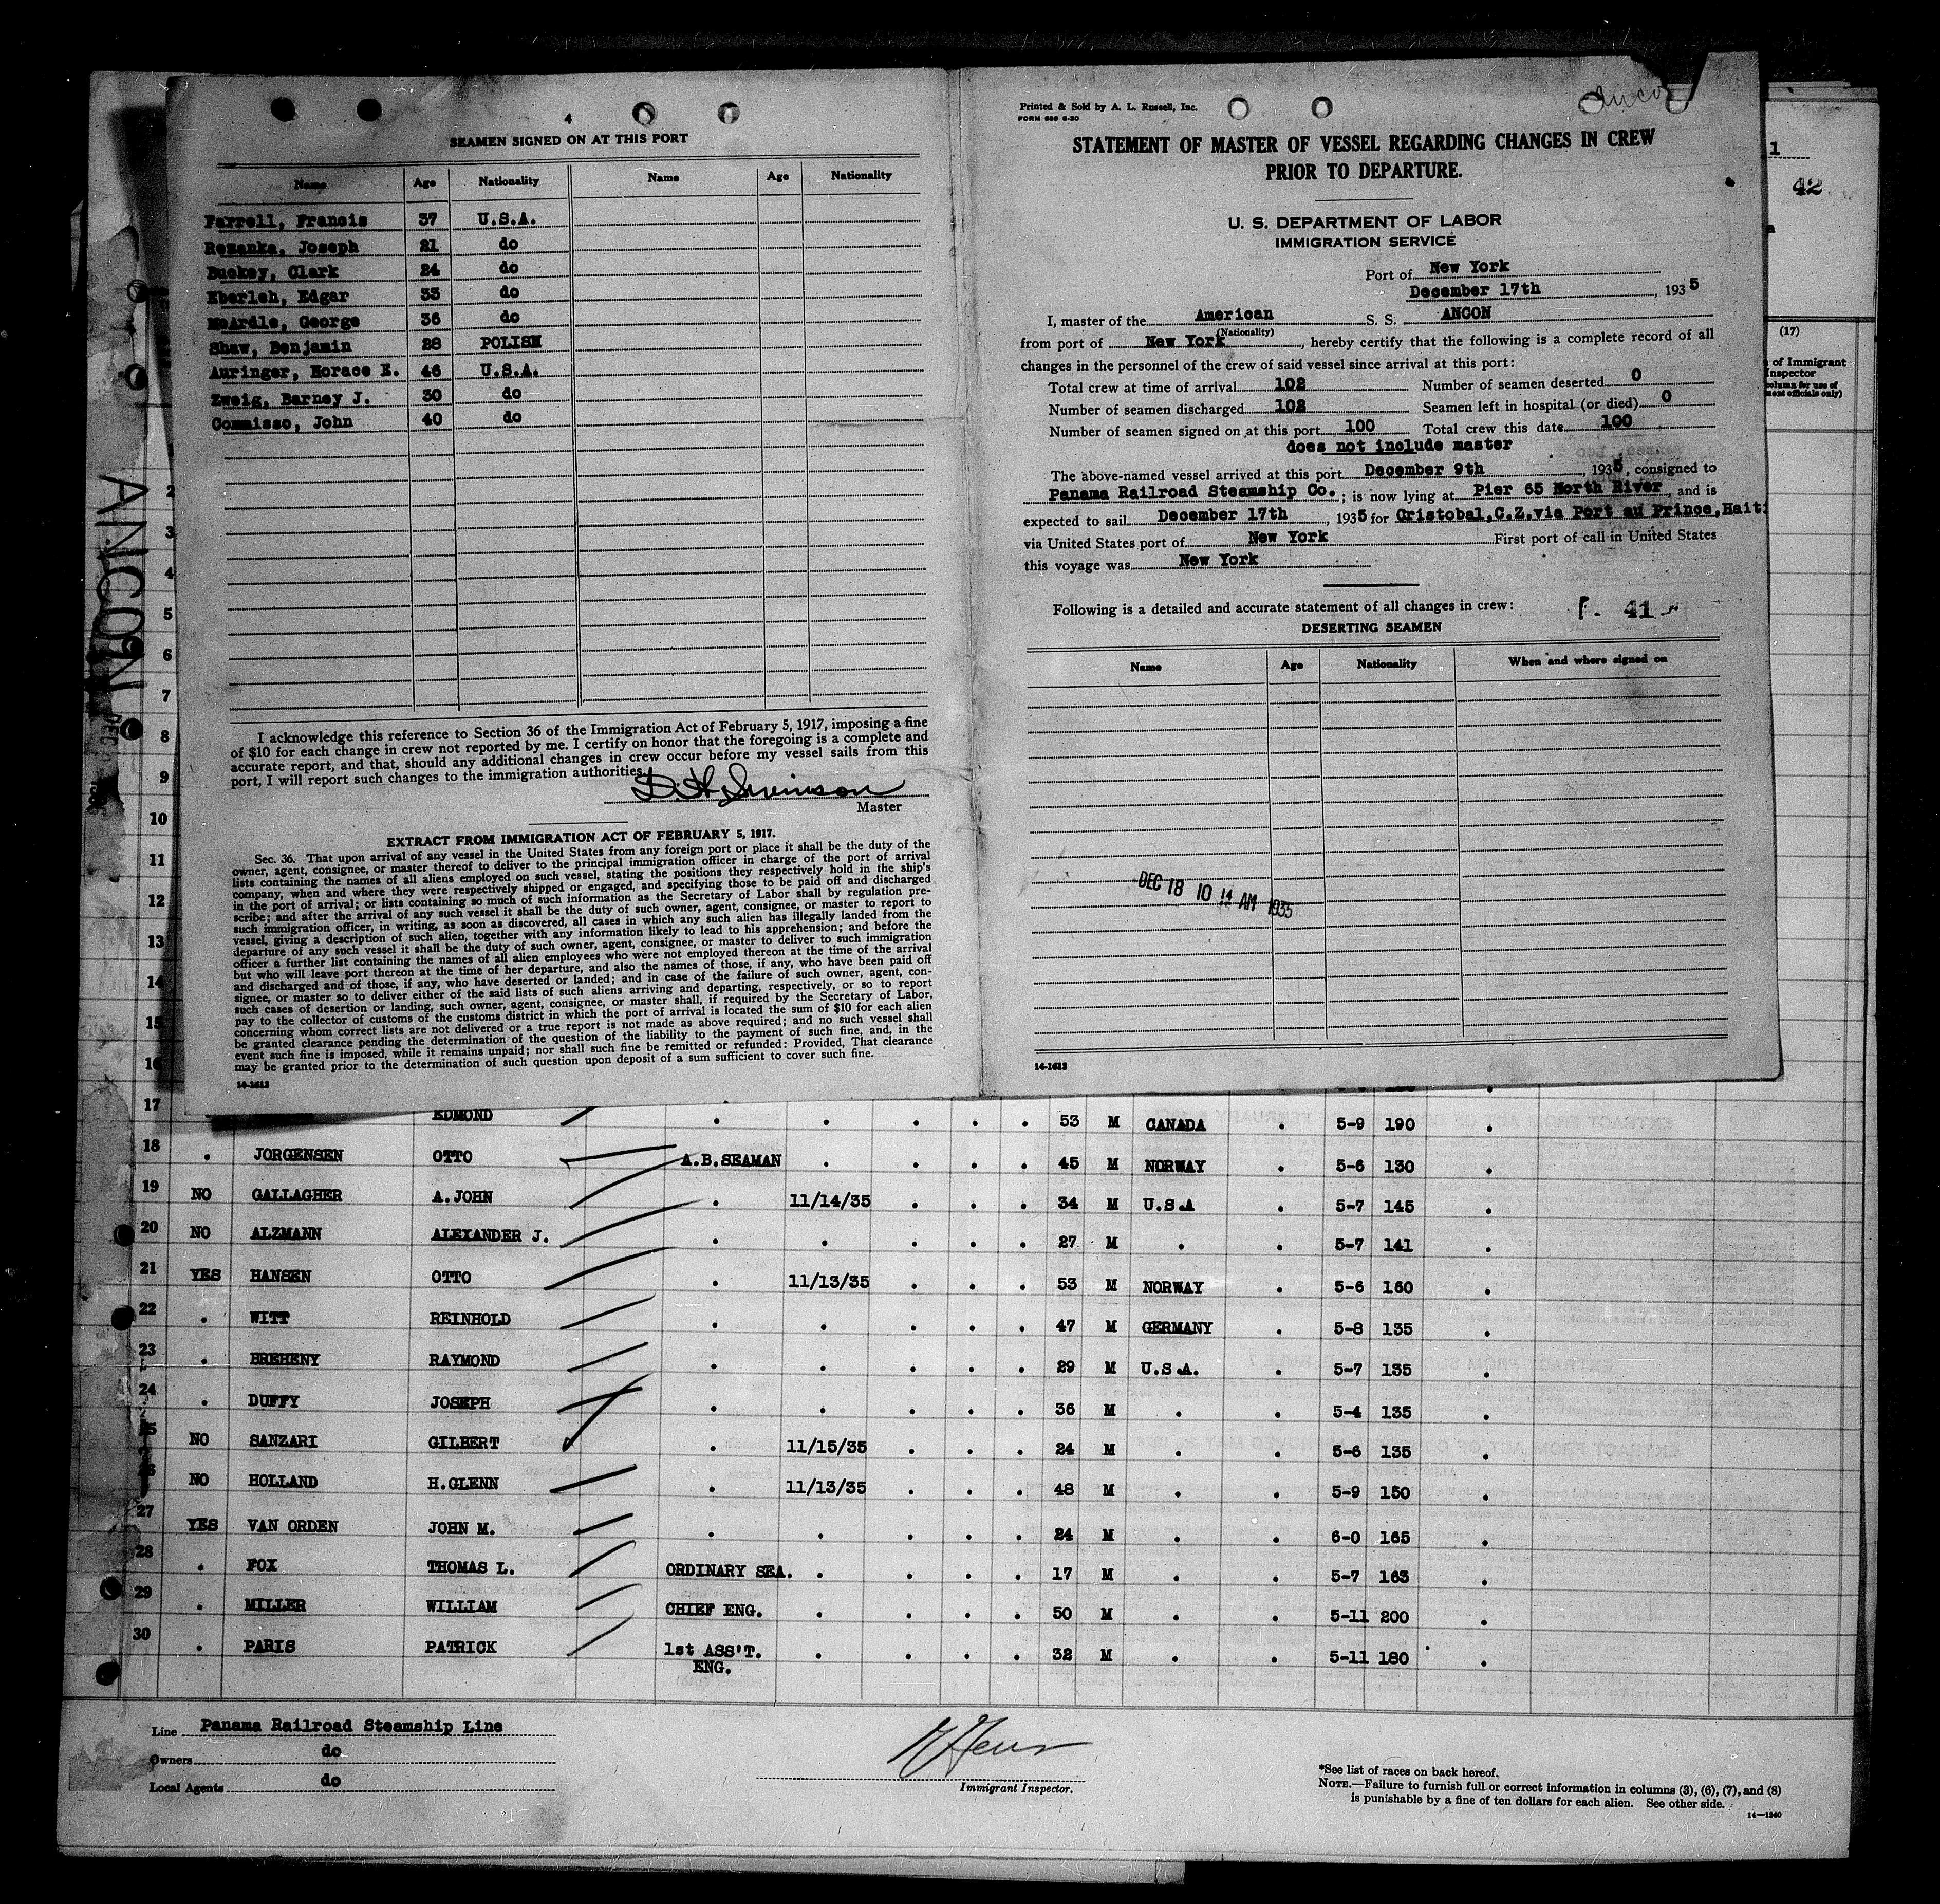 4
SEAMEN SIGNED ON AT THIS PORT
Name Age Nationality Name Age Nationality
Farrell, Francis 37 U.S.A.
Rezanka, Joseph 21 do
Buckey, Clark 24 do
Eberleh, Edgar 33 do
McArdle, George 36 do
Shaw, Benjamin 28 POLISH
Auringer, Horace E. 46 U.S.A.
Zweig, Barney J. 30 do
Commisso, John 40 do
I acknowledge this reference to Section 36 of the Immigration Act of February 5, 1917, imposing a fine
of $10 for each change in crew not reported by me. I certify on honor that the foregoing is a complete and
accurate report, and that, should any additional changes in crew occur before my vessel sails from this
port, I will report such changes to the immigration authorities.
Master
EXTRACT FROM IMMIGRATION ACT OF FEBRUARY 5, 1917.
Sec. 36. That upon arrival of any vessel in the United States from any foreign port or place it shall be the duty of the
owner, agent, consignee, or master thereof to deliver to the principal immigration officer in charge of the port of arrival
lists containing the names of all aliens employed on such vessel, stating the positions they respectively hold in the ship's
company, when and where they were respectively shipped or engaged, and specifying those to be paid off and discharged
in the port of arrival; or lists containing so much of such information as the Secretary of Labor shall by regulation pre-
scribe; and after the arrival of any such vessel it shall be the duty of such owner, agent, consignee, or master to report to
such immigration officer, in writing, as soon as discovered, all cases in which any such alien has illegally landed from the
vessel, giving a description of such alien, together with any information likely to lead to his apprehension; and before the
departure of any such vessel it shall be the duty of such owner, agent, consignee, or master to deliver to such immigration
officer a further list containing the names of all alien employees who were not employed thereon at the time of the arrival
but who will leave port thereon at the time of her departure, and also the names of those, if any, who have been paid off
and discharged and of those, if any, who have deserted or landed; and in case of the failure of such owner, agent, con-
signee, or master so to deliver either of the said lists of such aliens arriving and departing, respectively, or so to report
such cases of desertion or landing, such owner, agent, consignee, or master shall, if required by the Secretary of Labor,
pay to the collector of customs of the customs district in which the port of arrival is located the sum of $10 for each alien
concerning whom correct lists are not delivered or a true report is not made as above required; and no such vessel shall
be granted clearance pending the determination of the question of the liability to the payment of such fine, and, in the
event such fine is imposed, while it remains unpaid; nor shall such fine be remitted or refunded: Provided, That clearance
may be granted prior to the determination of such question upon deposit of a sum sufficient to cover such fine.
14-1613
Printed & Sold by A. L. Russell, Inc.
FORM 689 6-30
Ancon
STATEMENT OF MASTER OF VESSEL REGARDING CHANGES IN CREW
PRIOR TO DEPARTURE.
U. S. DEPARTMENT OF LABOR
IMMIGRATION SERVICE
Port of New York
December 17th, 1935
I, master of the American S. S. ANCON
(Nationality)
from port of New York, hereby certify that the following is a complete record of all
changes in the personnel of the crew of said vessel since arrival at this port:
Total crew at time of arrival 102 Number of seamen deserted 0
Number of seamen discharged 102 Seamen left in hospital (or died) 0
Number of seamen signed on at this port 100 Total crew this date 100
does not include master
The above-named vessel arrived at this port December 9th, 1935, consigned to
Panama Railroad Steamship Co.; is now lying at Pier 65 North River, and is
expected to sail December 17th, 1935 for Cristobal,C.Z.via Port au Prince,Haiti
via United States port of New York First port of call in United States
this voyage was New York
Following is a detailed and accurate statement of all changes in crew:
41
DESERTING SEAMEN
Name Age Nationality When and where signed on
DEC 18 10 14 AM 1935
14-1613
1
42
(17)
of Immigrant
Inspector
column for use of
ment officials only)
ANCON
2
3
4
5
6
7
8
9
10
11
12
13
14
15
16
17 EDMOND . . . . . 53 M CANADA . 5-9 190 .
18 . JORGENSEN OTTO A.B.SEAMAN . . . . 45 M NORWAY . 5-6 130 .
19 NO GALLAGHER A.JOHN . 11/14/35 . . . 34 M U.S.A . 5-7 145 .
20 NO ALZMANN ALEXANDER J. . . . . . 27 M . . 5-7 141 .
21 YES HANSEN OTTO . 11/13/35 . . . 53 M NORWAY . 5-6 160 .
22 . WITT REINHOLD . . . . . 47 M GERMANY . 5-8 135 .
23 . BREHENY RAYMOND . . . . . 29 M U.S.A. . 5-7 135 .
24 . DUFFY JOSEPH . . . . . 36 M . . 5-4 135 .
25 NO SANZARI GILBERT . 11/15/35 . . . 24 M . . 5-6 135 .
26 NO HOLLAND H.GLENN . 11/13/35 . . . 48 M . . 5-9 150 .
27 YES VAN ORDEN JOHN M. . . . . . 24 M . . 6-0 165 .
28 . FOX THOMAS L. ORDINARY SEA. . . . . 17 M . . 5-7 163 .
29 . MILLER WILLIAM CHIEF ENG. . . . . 50 M . . 5-11 200 .
30 . PARIS PATRICK 1st ASS'T. . . . . 32 M . . 5-11 180 .
ENG.
Line Panama Railroad Steamship Line
Owners do
Local Agents do
Immigrant Inspector.
*See list of races on back hereof.
NOTE.—Failure to furnish full or correct information in columns (3), (6), (7), and (8)
is punishable by a fine of ten dollars for each alien. See other side.
14—1240